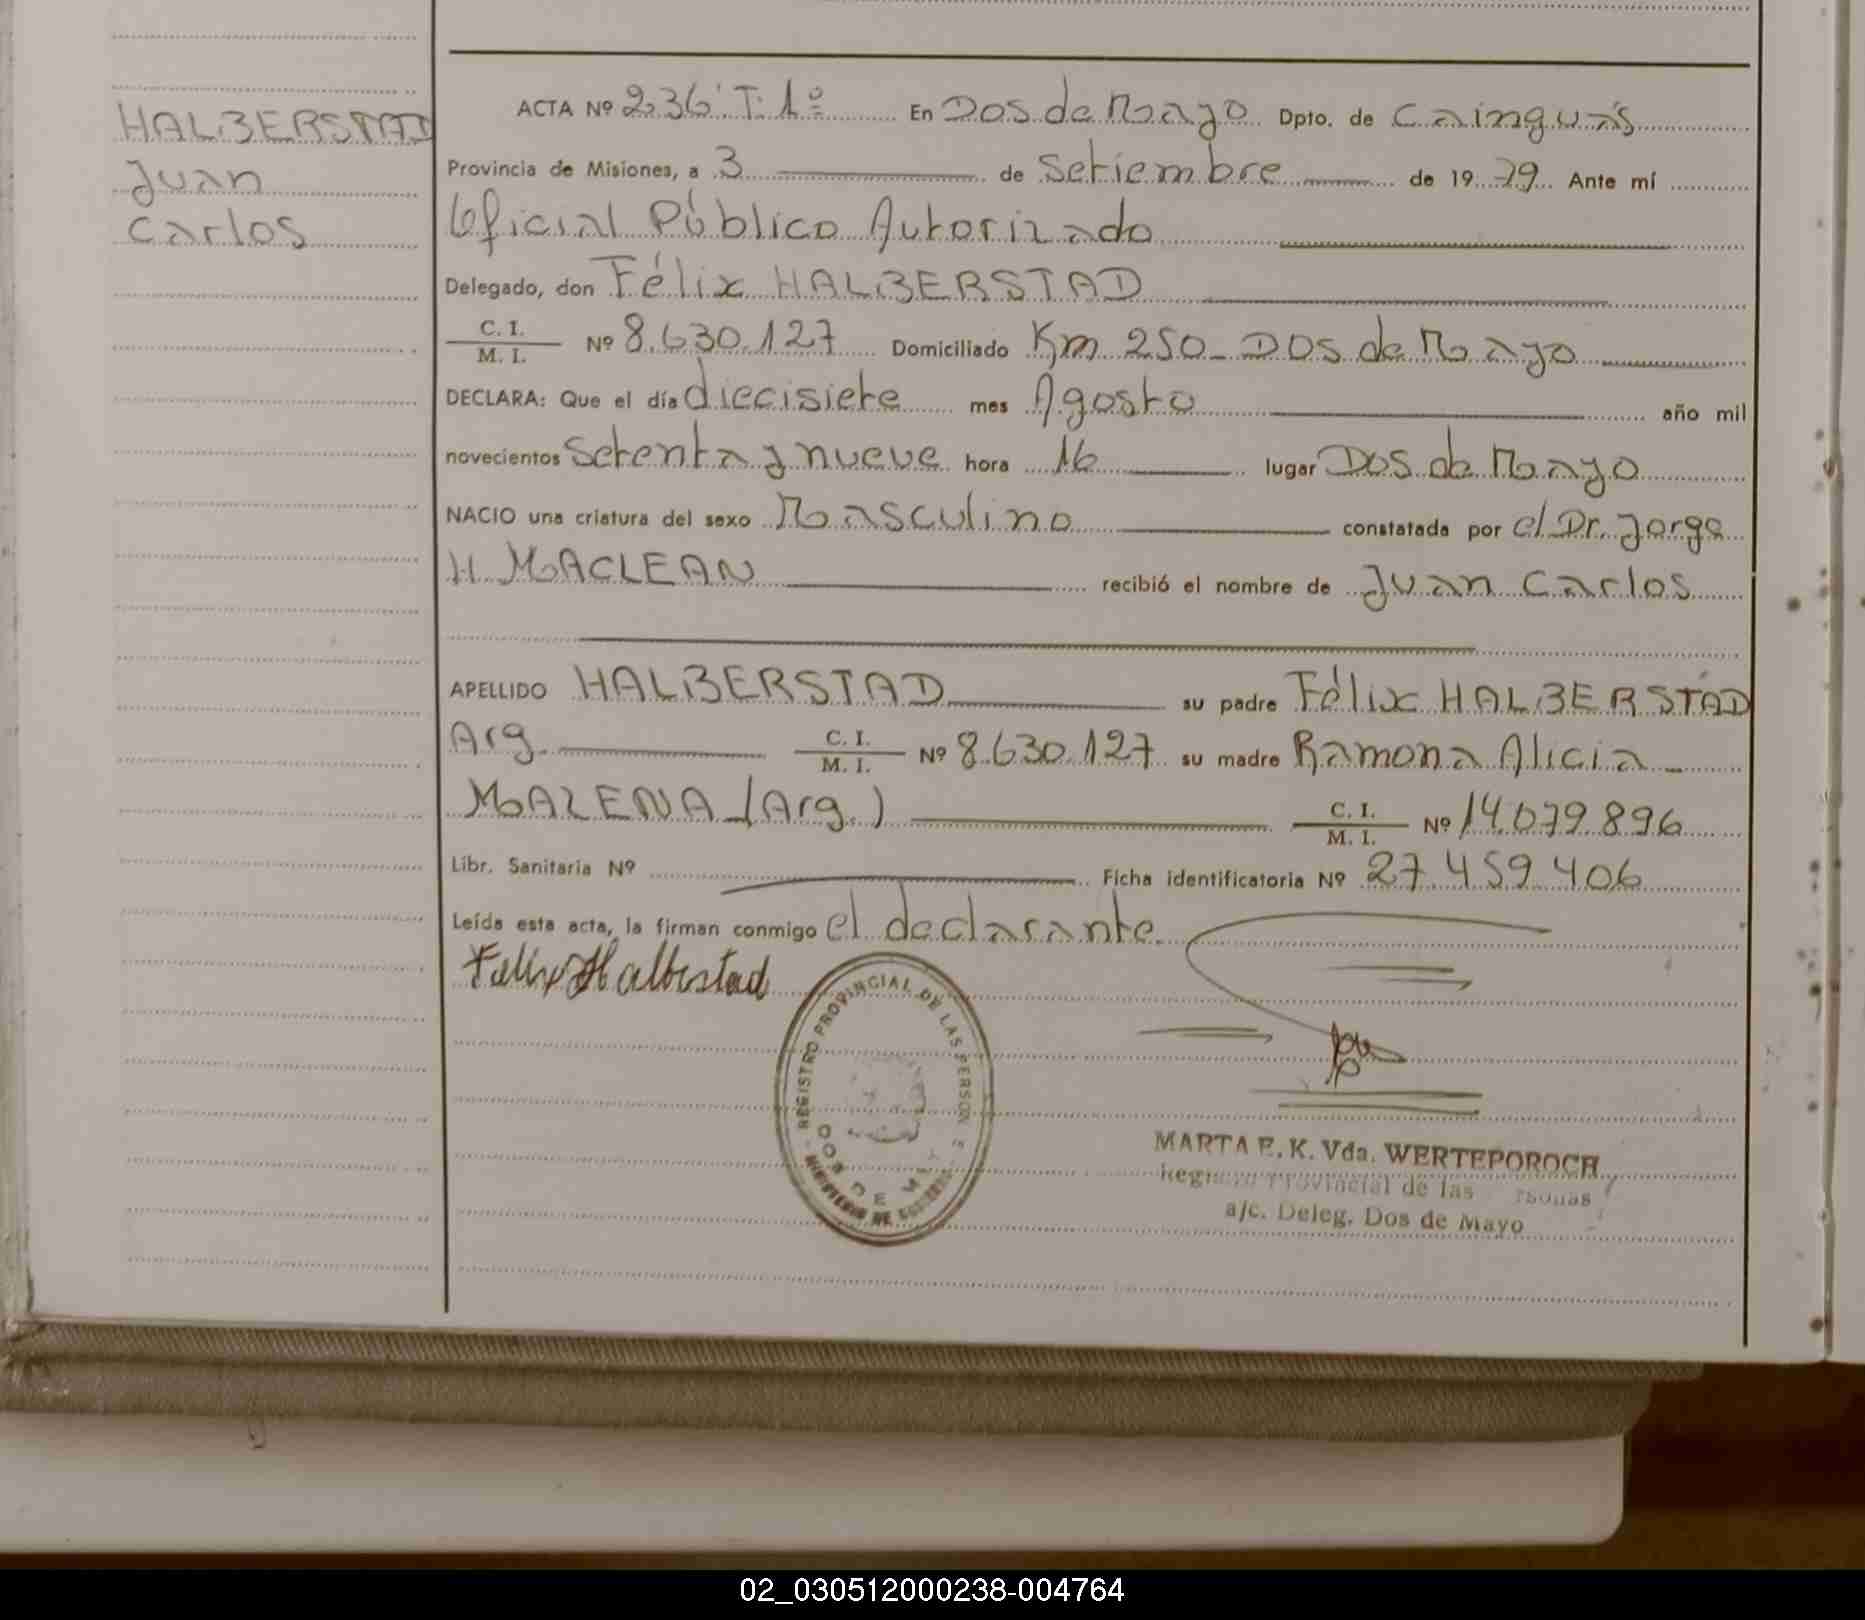 HALBERSTAD
Juan
Carlos
ACTA Nº 236 T. 1º En Dos de Mayo Dpto. de Cainguás
Provincia de Misiones, a 3 de Setiembre de 1979. Ante mí
Oficial Público Autorizado
Delegado, don Félix HALBERSTAD
C. I.
M. I. Nº 8.630.127 Domiciliado Km 250 - Dos de Mayo
DECLARA: Que el día diecisiete mes Agosto año mil
novecientos setenta y nueve hora 16 lugar Dos de Mayo
NACIO una criatura del sexo Masculino constatada por el Dr. Jorge
H. MACLEAN recibió el nombre de Juan Carlos
APELLIDO HALBERSTAD su padre Félix HALBERSTAD
Arg. C. I.
M. I. Nº 8.630.127 su madre Ramona Alicia -
MALENA (Arg.) C. I.
M. I. Nº 14.079.896
Libr. Sanitaria Nº Ficha identificatoria Nº 27.459.406
Leída esta acta, la firman conmigo el declarante.
Felix Halberstad
REGISTRO PROVINCIAL DE LAS PERSON
DOS DE MAY
MINISTERIO DE
MARTA E. K. Vda. WERTEPOROCH
Registro Provincial de las Personas
a/c. Deleg. Dos de Mayo
02_030512000238-004764